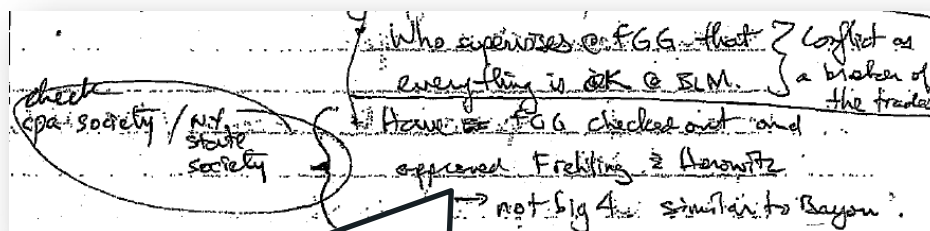 Who supervises @ FGG that } Conflict as
everything is OK @ BLM. } a broker of
the trades
check
cpa society / N.Y.
state
society
Have FGG checked out and
approved Frehling & Horowitz
→ not big 4 similar to Bayou.